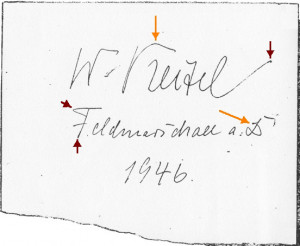 W. Keitel
Feldmarschall a. D
1946.